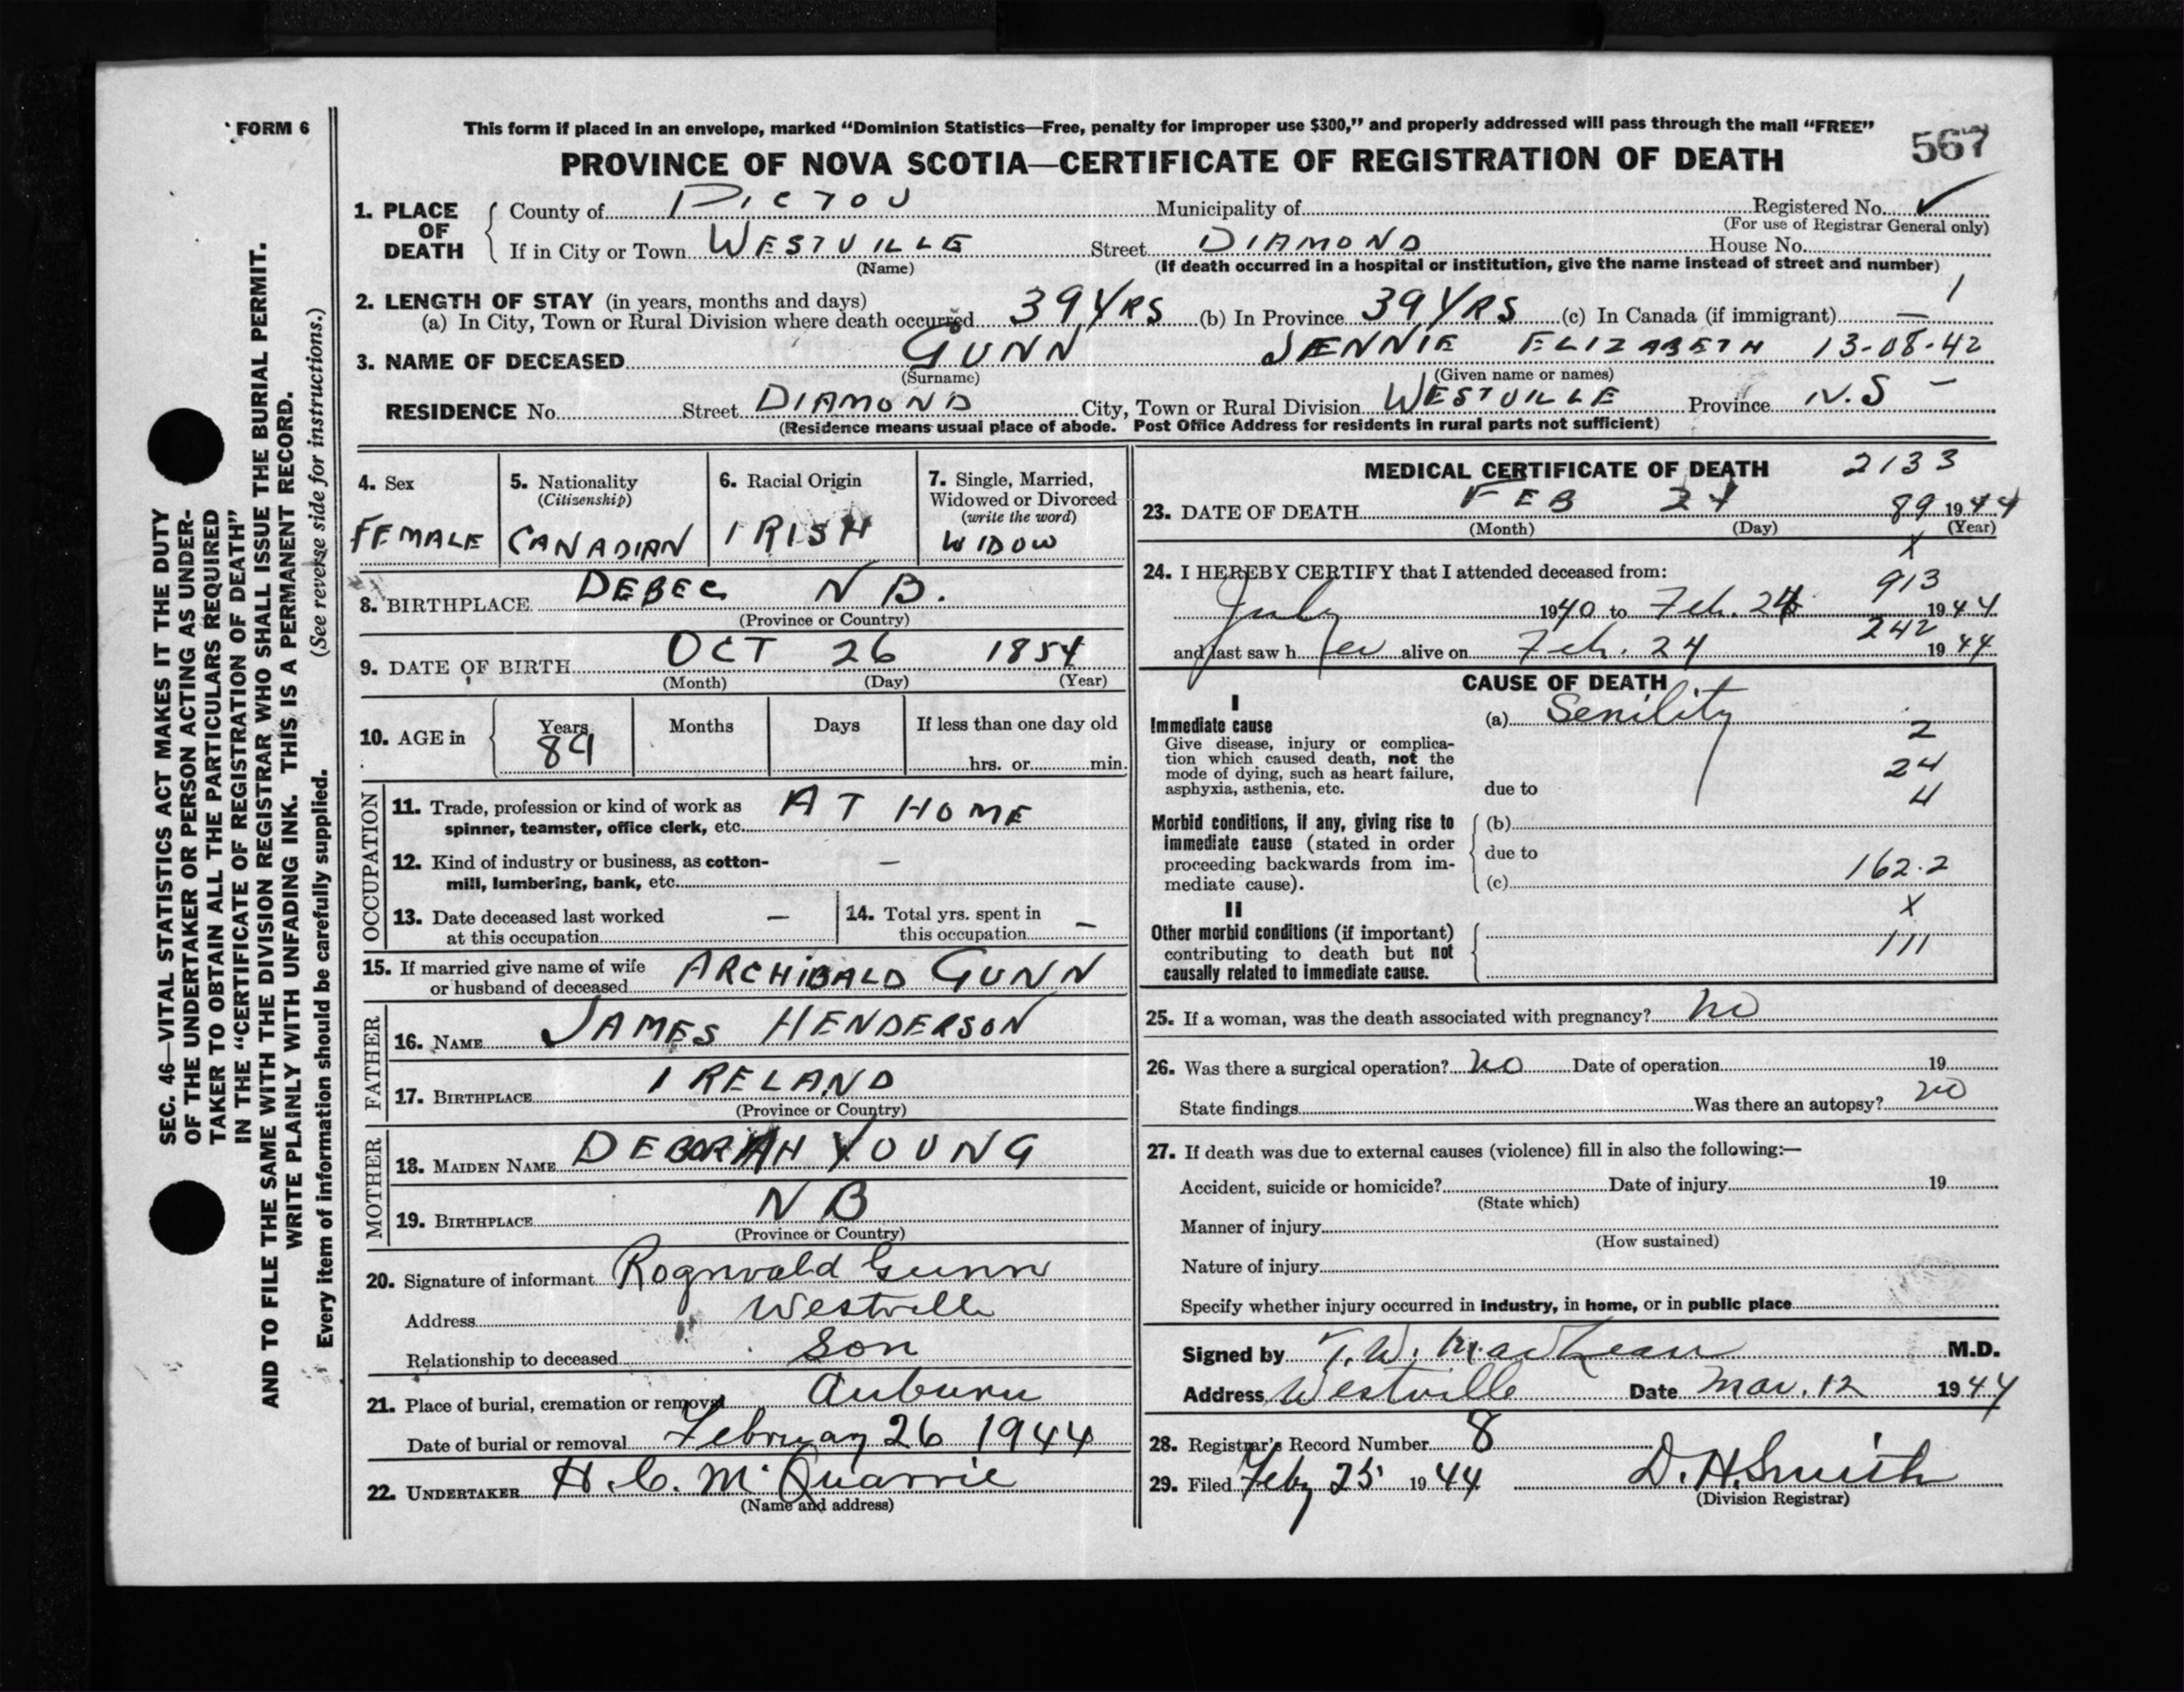 FORM 6
This form if placed in an envelope, marked “Dominion Statistics—Free, penalty for improper use $300,” and properly addressed will pass through the mail “FREE”
567
PROVINCE OF NOVA SCOTIA—CERTIFICATE OF REGISTRATION OF DEATH
1. PLACE OF DEATH County of PICTOU Municipality of Registered No. ✓
(For use of Registrar General only)
If in City or Town WESTVILLE Street DIAMOND House No.
(Name) (If death occurred in a hospital or institution, give the name instead of street and number)
2. LENGTH OF STAY (in years, months and days) 1
(a) In City, Town or Rural Division where death occurred 39 YRS (b) In Province 39 YRS (c) In Canada (if immigrant) —
3. NAME OF DECEASED GUNN JENNIE ELIZABETH 13-08-42
(Surname) (Given name or names)
RESIDENCE No. Street DIAMOND City, Town or Rural Division WESTVILLE Province N.S —
(Residence means usual place of abode. Post Office Address for residents in rural parts not sufficient)
4. Sex FEMALE
5. Nationality (Citizenship) CANADIAN
6. Racial Origin IRISH
7. Single, Married, Widowed or Divorced (write the word) WIDOW
8. BIRTHPLACE DEBEC N B.
(Province or Country)
9. DATE OF BIRTH OCT 26 1854
(Month) (Day) (Year)
10. AGE in Years 89 Months Days If less than one day old
hrs. or min.
OCCUPATION
11. Trade, profession or kind of work as spinner, teamster, office clerk, etc. AT HOME
12. Kind of industry or business, as cotton-mill, lumbering, bank, etc. —
13. Date deceased last worked at this occupation —
14. Total yrs. spent in this occupation —
15. If married give name of wife or husband of deceased ARCHIBALD GUNN
FATHER
16. NAME JAMES HENDERSON
17. BIRTHPLACE IRELAND
(Province or Country)
MOTHER
18. MAIDEN NAME DEBORAH YOUNG
19. BIRTHPLACE N B
(Province or Country)
20. Signature of informant Rognvald Gunn
Address Westville
Relationship to deceased Son
21. Place of burial, cremation or removal Auburn
Date of burial or removal February 26 1944
22. UNDERTAKER H. C. McQuarrie
(Name and address)
MEDICAL CERTIFICATE OF DEATH 2133
23. DATE OF DEATH FEB 24 89 1944
(Month) (Day) (Year)
X
24. I HEREBY CERTIFY that I attended deceased from:
913
July 1940 to Feb. 24 1944
242
and last saw her alive on Feb. 24 1944
CAUSE OF DEATH
I
Immediate cause (a) Senility
Give disease, injury or complication which caused death, not the mode of dying, such as heart failure, asphyxia, asthenia, etc. due to
2
24
4
Morbid conditions, if any, giving rise to immediate cause (stated in order proceeding backwards from immediate cause).
(b)
due to
(c) 162.2
X
II
Other morbid conditions (if important) contributing to death but not causally related to immediate cause. 111
25. If a woman, was the death associated with pregnancy? no
26. Was there a surgical operation? no Date of operation 19
State findings Was there an autopsy? no
27. If death was due to external causes (violence) fill in also the following:—
Accident, suicide or homicide? Date of injury 19
(State which)
Manner of injury
(How sustained)
Nature of injury
Specify whether injury occurred in industry, in home, or in public place
Signed by T. W. MacLean M.D.
Address Westville Date Mar. 12 1944
28. Registrar's Record Number 8
29. Filed Feby 25 1944 D. H. Smith
(Division Registrar)
SEC. 46—VITAL STATISTICS ACT MAKES IT THE DUTY
OF THE UNDERTAKER OR PERSON ACTING AS UNDER-
TAKER TO OBTAIN ALL THE PARTICULARS REQUIRED
IN THE “CERTIFICATE OF REGISTRATION OF DEATH”
AND TO FILE THE SAME WITH THE DIVISION REGISTRAR WHO SHALL ISSUE THE BURIAL PERMIT.
WRITE PLAINLY WITH UNFADING INK. THIS IS A PERMANENT RECORD.
Every item of information should be carefully supplied. (See reverse side for instructions.)